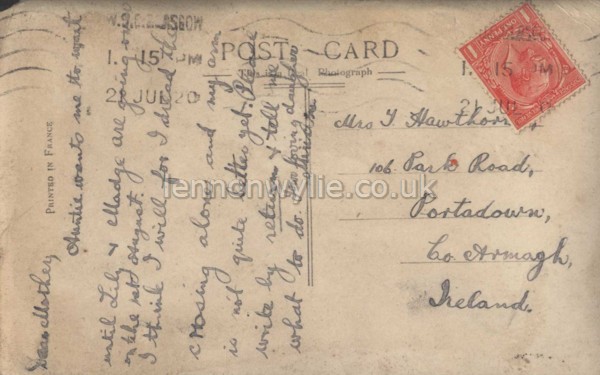 POST CARD
This is a Real Photograph
PRINTED IN FRANCE
1. 15 PM
2 JUL 20
1. 15 PM
ONE PENNY
Dear Mother,
Auntie wants me to wait
until Lily & Madge are going over
on the 1st August.
I think I will for I dread the
crossing alone and my arm
is not quite better yet. Please
write by return & tell me
what to do. Your loving daughter
Mrs J Hawthorne,
106 Park Road,
Portadown,
Co Armagh,
Ireland.
fennonwylie.co.uk